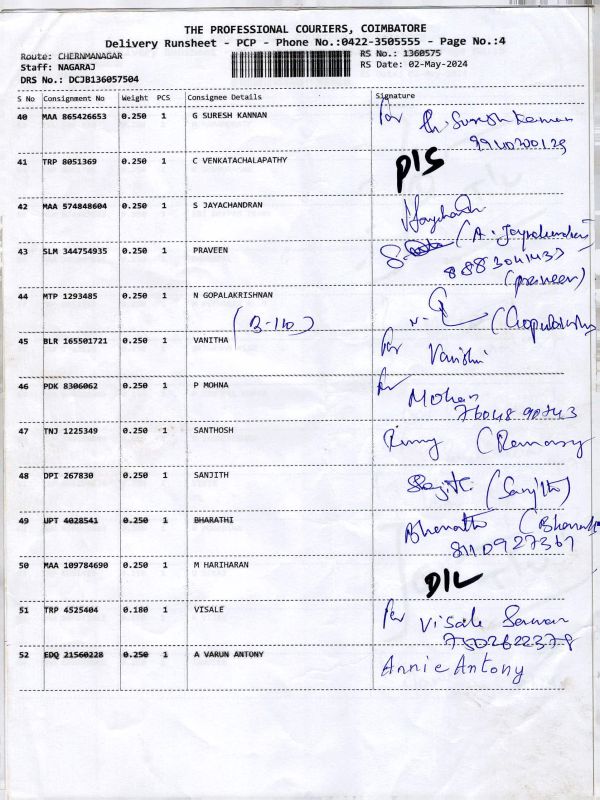 THE PROFESSIONAL COURIERS, COIMBATORE
Delivery Runsheet - PCP - Phone No.:0422-3505555 - Page No.:4
Route: CHERNMANAGAR RS No.: 1360575
Staff: NAGARAJ RS Date: 02-May-2024
DRS No.: DCJB136057504
S No Consignment No Weight PCS Consignee Details Signature
40 MAA 865426653 0.250 1 G SURESH KANNAN For
41 TRP 8051369 0.250 1 C VENKATACHALAPATHY
42 MAA 574848604 0.250 1 S JAYACHANDRAN
43 SLM 344754935 0.250 1 PRAVEEN
(praveen)
44 MTP 1293485 0.250 1 N GOPALAKRISHNAN
(B-110)
45 BLR 165501721 0.250 1 VANITHA For
46 PDK 8306062 0.250 1 P MOHNA Mohan
47 TNJ 1225349 0.250 1 SANTHOSH
48 DPI 267830 0.250 1 SANJITH (Sanjith)
49 UPT 4028541 0.250 1 BHARATHI
8110927367
50 MAA 109784690 0.250 1 M HARIHARAN D/L
51 TRP 4525404 0.180 1 VISALE For Visale
7502622378
52 EDQ 21560228 0.250 1 A VARUN ANTONY Annie Antony